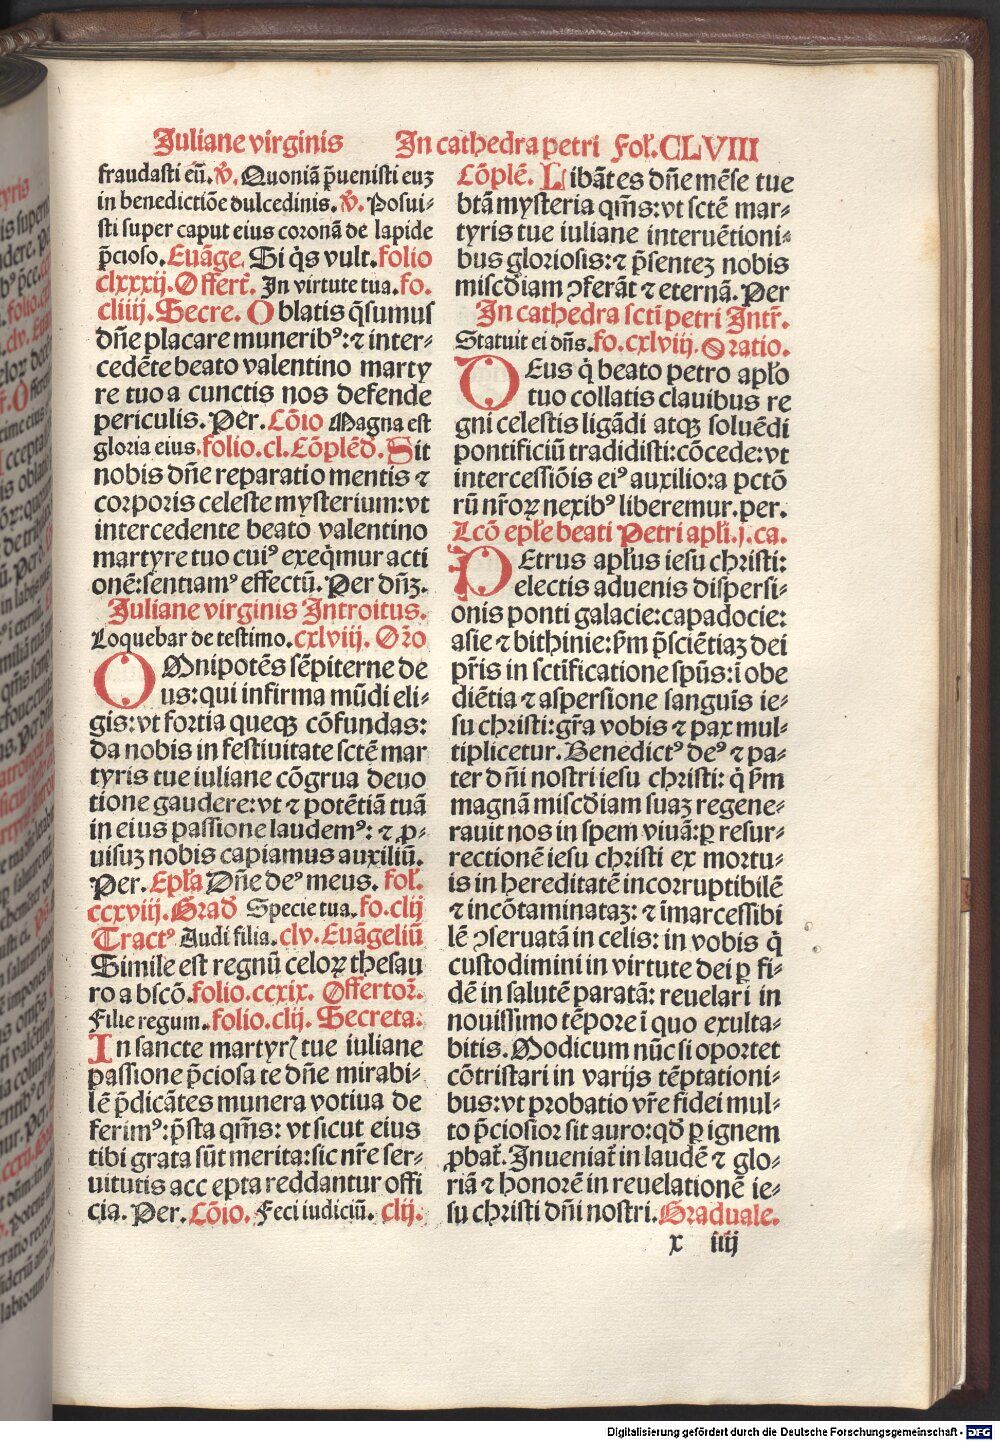 Juliane virginis In cathedra petri Fol̃.CLVIII
fraudasti eū. ℣. Quoniā p̄uenisti euʒ
in benedictiōe dulcedinis. ℣. Posui⸗
sti super caput eius coronā de lapide
p̄cioso. Euāge. Si q̇s vult. folio
clxxxij. Offert̃. In virtute tua. fo.
cliiij. Secre. Oblatis q̄sumus
dñe placare munerib⁹: ⁊ inter⸗
cedēte beato valentino marty
re tuo a cunctis nos defende
periculis. Per. Cōio Magna est
gloria eius. folio.cl. Cōplēd̄. Sit
nobis dñe reparatio mentis ⁊
corporis celeste mysterium: vt
intercedente beato valentino
martyre tuo cui⁹ exeq̇mur acti
onē: sentiam⁹ effectū. Per dñʒ.
Juliane virginis Introitus.
Loquebar de testimo. cxlviij. Or̃o
OMnipotēs sēpiterne de
us: qui infirma mūdi eli⸗
gis: vt fortia queqʒ cōfundas:
da nobis in festiuitate sctē mar
tyris tue iuliane cōgrua deuo
tione gaudere: vt ⁊ potētiā tuā
in eius passione laudem⁹: ⁊ ꝓ⸗
uisuʒ nobis capiamus auxiliū.
Per. Epl̃a Dñe de⁹ meus. fol̃.
ccxviij. Grad̄ Specie tua. fo.clij
Tract⁹ Audi filia. clv. Euāgeliū
Simile est regnū celoꝝ thesau
ro abscō. folio.ccxix. Offertor̃.
Filie regum. folio.clij. Secreta.
In sancte martyrꝭ tue iuliane
passione p̄ciosa te dñe mirabi⸗
lē p̄dicātes munera votiua de
ferim⁹: p̄sta qm̄s: vt sicut eius
tibi grata sūt merita: sic nr̃e ser⸗
uitutis accepta reddantur offi
cia. Per. Cōio. Feci iudiciū. clij.
Cōplē. Libātes dñe mēse tue
btā mysteria qm̄s: vt sctē mar⸗
tyris tue iuliane interuētioni⸗
bus gloriosis: ⁊ p̄senteʒ nobis
misc̄diam ꝯferāt ⁊ eternā. Per
In cathedra scti petri Intr̃.
Statuit ei dñs. fo.cxlviij. Oratio.
DEus q̇ beato petro apl̃o
tuo collatis clauibus re
gni celestis ligādi atqʒ soluēdi
pontificiū tradidisti: cōcede: vt
intercessiōis ei⁹ auxilio: a pctō
rū nr̃oꝝ nexib⁹ liberemur. per.
Lcō epl̃e beati Petri apl̃i. j. ca.
PEtrus apl̃us iesu christi:
electis aduenis dispersi⸗
onis ponti galacie: capadocie:
asie ⁊ bithinie: p̄m p̄sciētiaʒ dei
pr̃is in sctificatione spūs: ī obe
diētia ⁊ aspersione sanguīs ie⸗
su christi: gr̃a vobis ⁊ pax mul⸗
tiplicetur. Benedict⁹ de⁹ ⁊ pa⸗
ter dñi nostri iesu christi: q̇ p̄m
magnā misc̄diam suaʒ regene⸗
rauit nos in spem viuā: ꝑ resur⸗
rectionē iesu christi ex mortu⸗
is in hereditatē incorruptibilē
⁊ incōtaminataʒ: ⁊ īmarcessibi
lē ꝯseruatā in celis: in vobis q̇
custodimini in virtute dei ꝑ fi⸗
dē in salutē paratā: reuelari in
nouissimo tēpore ī quo exulta⸗
bitis. Modicum nūc si oportet
cōtristari in varijs tēptationi⸗
bus: vt probatio vr̃e fidei mul⸗
to p̄ciosior sit auro: qd̄ ꝑ ignem
ꝓbat̃. Inueniat̃ in laudē ⁊ glo⸗
riā ⁊ honorē in reuelationē ie⸗
su christi dñi nostri. Graduale.
x iiij
Digitalisierung gefördert durch die Deutsche Forschungsgemeinschaft - DFG